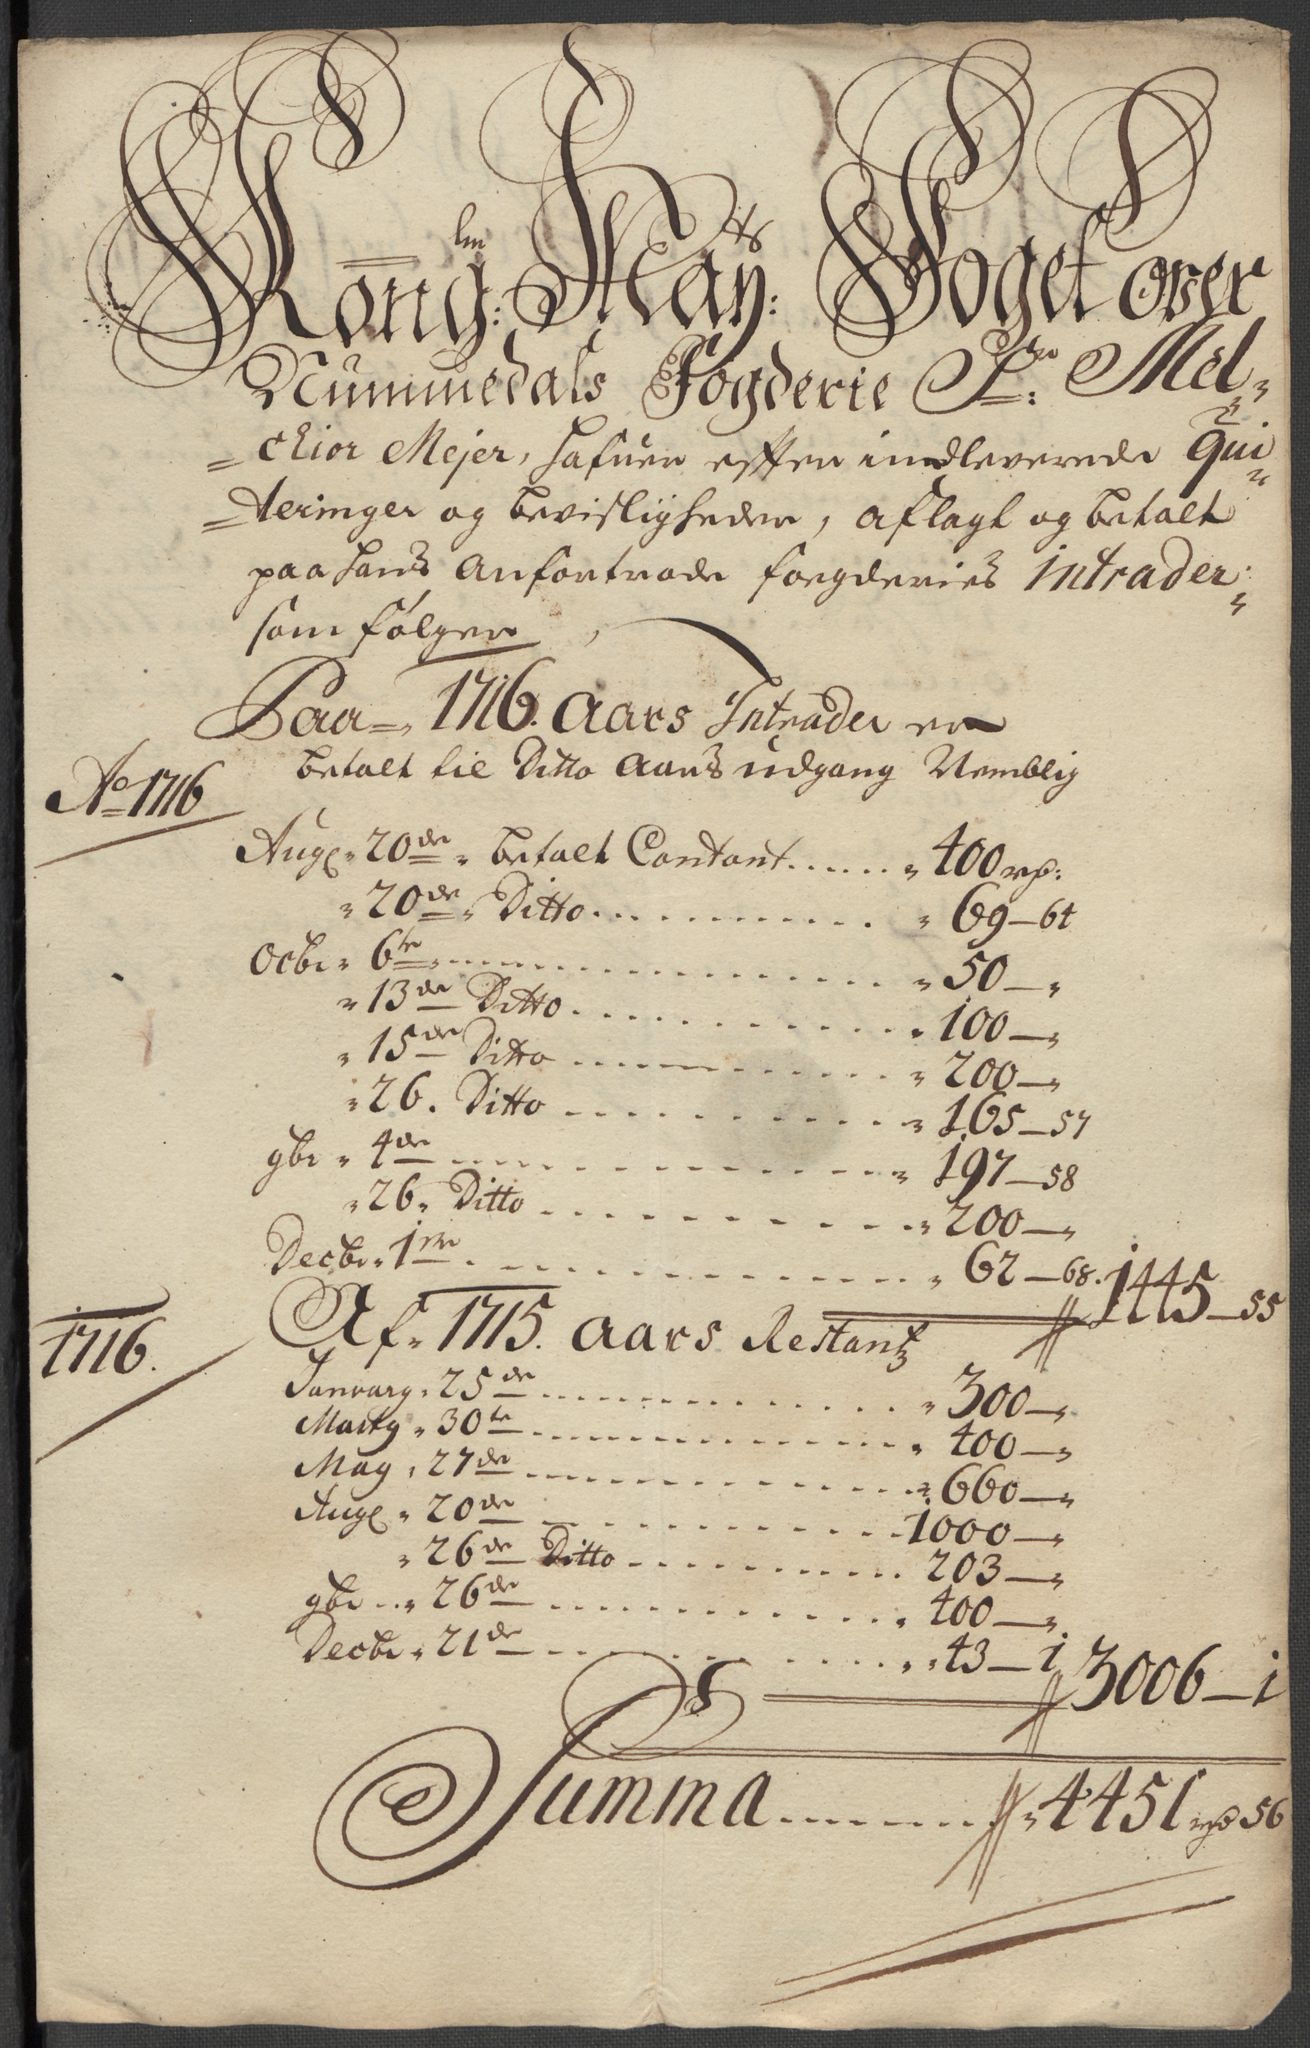 Kong: len May: ts Foget over
Nummedals Fogderie Sr: Mel-
chior Mejer, hafuer effter indleverede Qui-
teringer og bevisligheder, aflagt og betalt
paa hans anfortrode fogderies Intrader:
som følger
Paa 1716. Aars Intrader er
betalt til Ditto Aars udgang Nemblig
Ao 1716
Aug. 20de betalt Contant ...... 400 rd:
20de Ditto ........... 69 – 64
Octbr 6te ........... 50 –
13de Ditto ........... 100 –
15de Ditto ........... 200 –
26. Ditto ........... 165 – 57
9br 4de ........... 197 – 58
26. Ditto ........... 200 –
Decbr 1ste ........... 62 – 68. 1445 – 55
1716.
Af 1715. Aars Restantz
January 25de ........... 300 –
Marty 30te ........... 400 –
May 27de ........... 660 –
Aug. 20de ........... 1000 –
26de Ditto ........... 203 –
9br 26de ........... 400 –
Decbr 21de ........... 43 – 1 3006 – 1
Summa ........... 4451 rd 56